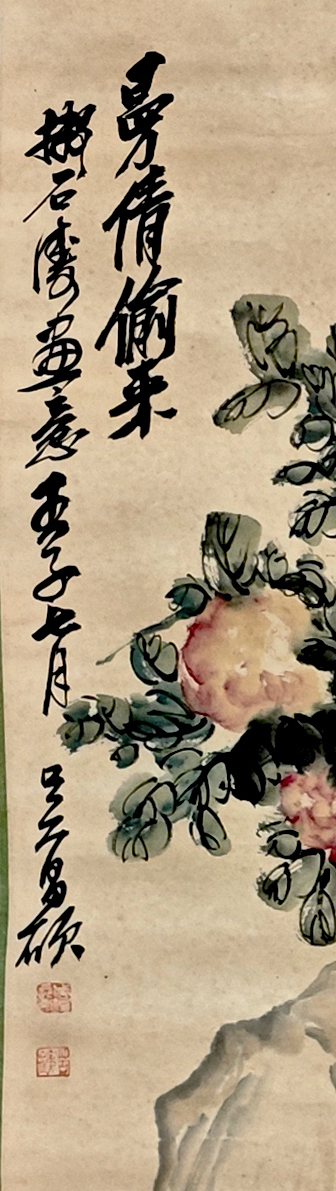 曼倩偷來
擬石濤畫意壬子七月
吳昌碩